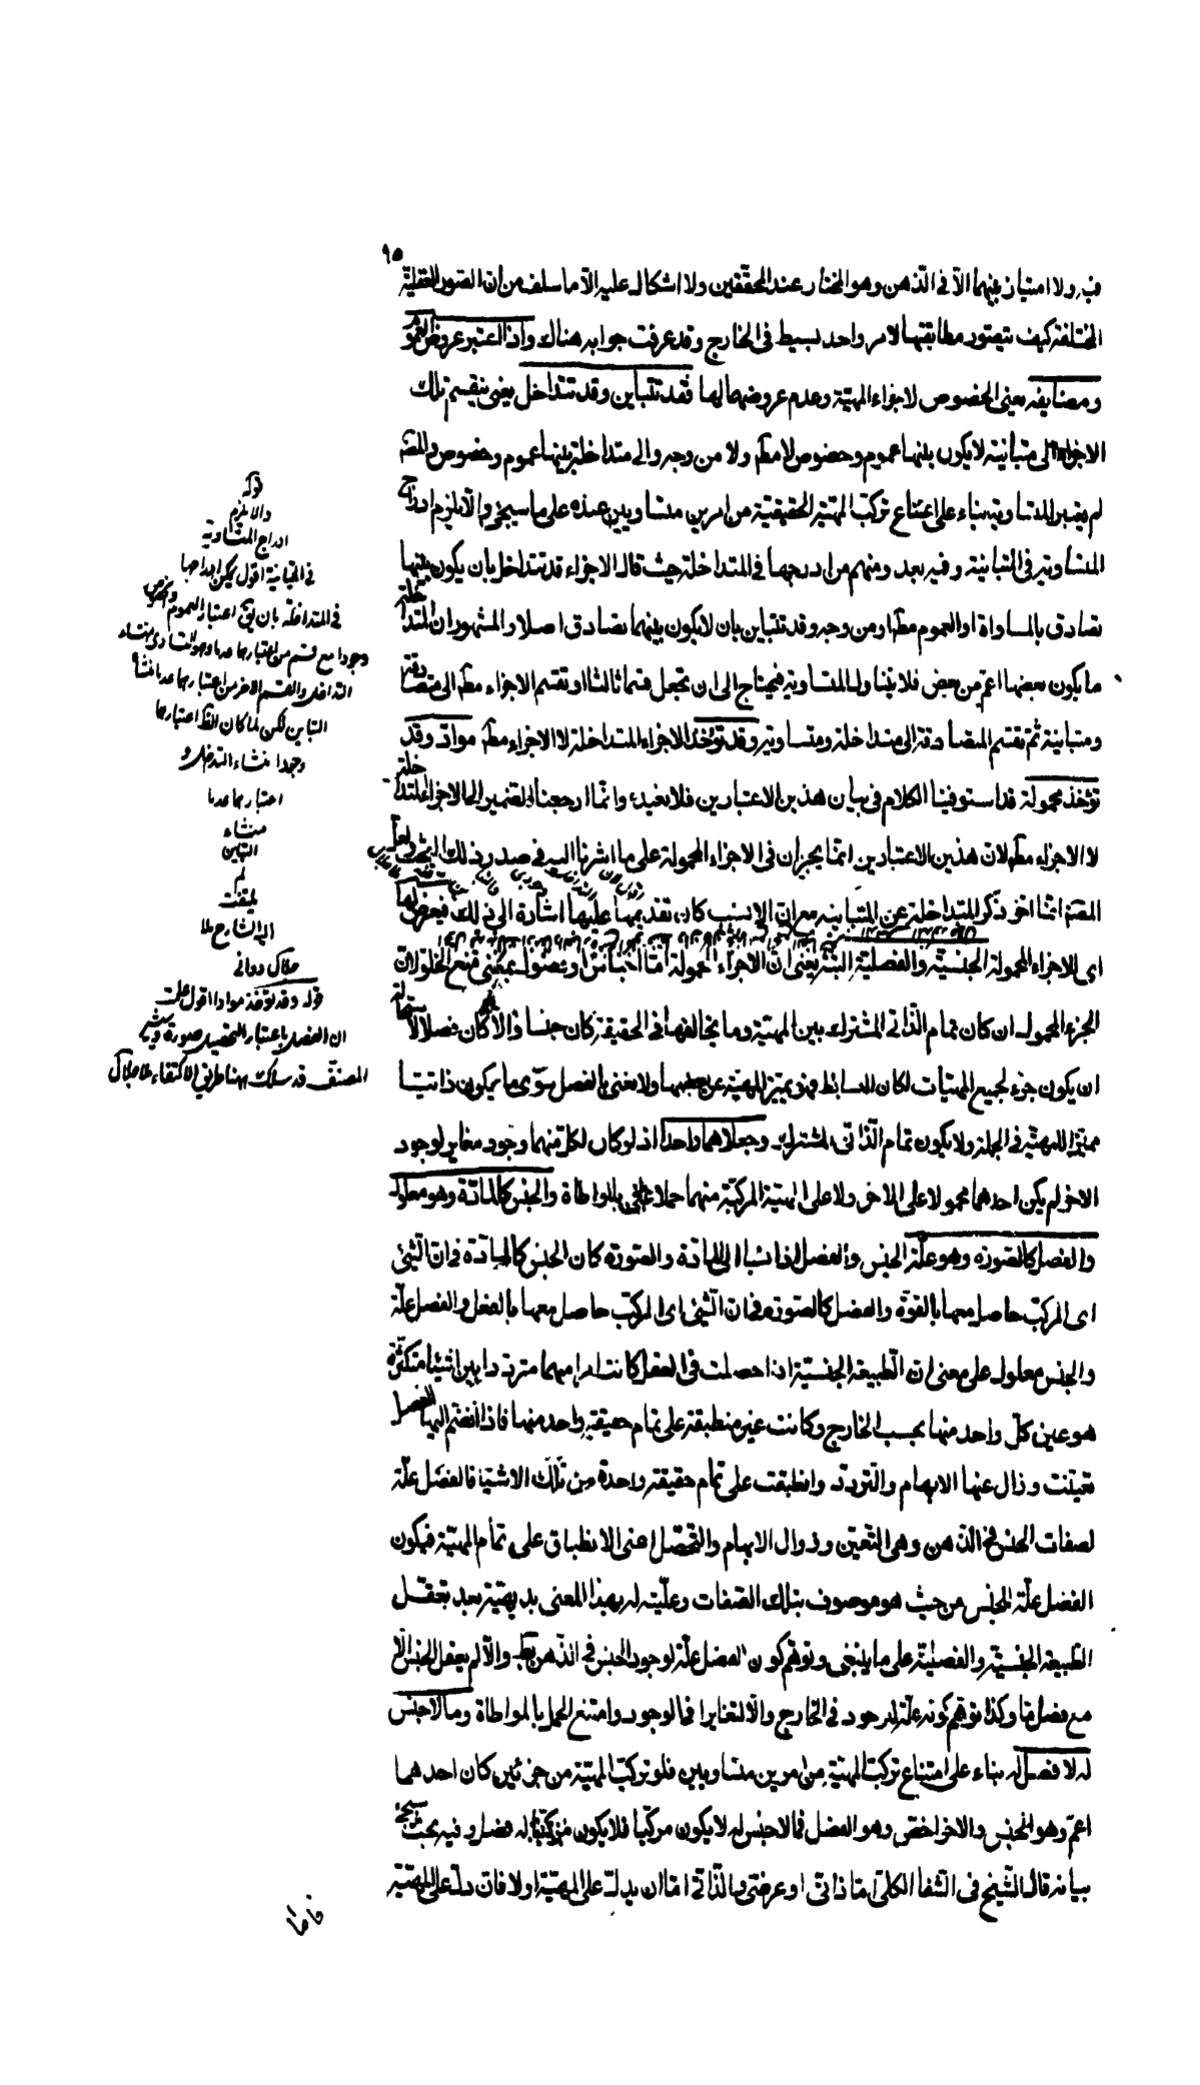 ٩٥
فيه ولا امتياز بينهما الا فى الذهن وهو المختار عند المحققين ولا اشكال عليه الا ما سلف من ان الصور العقلية
المختلفة كيف يتصور مطابقتها لامر واحد بسيط فى الخارج وقد عرفت جوابه هناك واذا اعتبر عروض العموم
ومضايفه يعنى الخصوص لاجزاء المهية وعدم عروضهما لها فقد تتباين وقد تتداخل يعنى ينقسم تلك
الاجزاء الى متباينة لا يكون بينها عموم وخصوص لا مطم ولا من وجه والى متداخلة بينها عموم وخصوص والمصم
لم يعتبر المتساوية بناء على امتناع تركب المهية الحقيقية من امرين متساويين عنده على ما سيجئ والا يلزم ادراج
المتساوية فى المتباينة وفيه بعد ومنهم من ادرجها فى المتداخلة حيث قال الاجزاء قد تتداخل بان يكون بينها
تصادق بالمساواة او العموم مطم او من وجه وقد تتباين بان لا يكون بينهما تصادق اصلا والمشهور ان المتداخلة
ما يكون بعضها اعم من بعض فلا يتناول المتساوية فيحتاج الى ان تجعل قسما ثالثا او تقسم الاجزاء مطم الى متصادقة
ومتباينة ثم تقسم المتصادقة الى متداخلة ومتساوية وقد تؤخذ الاجزاء المتداخلة لا الاجزاء مطم مواد وقد
تؤخذ محمولة قد استوفينا الكلام فى بيان هذين الاعتبارين فلا نعيده وانما ارجعنا الضمير الى الاجزاء المتداخلة
لا الاجزاء مطم لان هذين الاعتبارين انما يجريان فى الاجزاء المحمولة على ما اشرنا اليه فى صدر ذلك البحث ولعل
المصم انما اخر ذكر المتداخلة عن المتباينة مع ان الانسب كان تقديمها عليها اشارة الى ذلك فيعرض لها
اى للاجزاء المحمولة الجنسية والفصلية البتة يعنى ان الاجزاء المحمولة اما اجناس او فصول بمعنى منع الخلو لان
الجزء المحمول ان كان تمام الذاتى المشترك بين المهية وما يخالفها فى الحقيقة كان جنسا والا كان فصلا لاستحالة
ان يكون جزء لجميع المهيات لمكان البسائط فهو يميز المهية عن بعضها ولا نعنى بالفصل سوى ما يكون ذاتيا
مميزا للمهية فى الجملة ولا يكون تمام الذاتى المشترك وجعلاهما واحد اذ لو كان لكل منهما وجود مغاير لوجود
الاخر لم يكن احدهما محمولا على الاخر ولا على المهية المركبة منهما حملا بالمواطاة والجنس كالمادة وهو معلول
والفصل كالصورة وهو علة الجنس والفصل اذا نسبا الى المادة والصورة كان الجنس كالمادة فان الشئ
اى المركب حاصل معها بالقوة والفصل كالصورة فان الشئ اى المركب حاصل معها بالفعل والفصل علة
والجنس معلول على معنى ان الطبيعة الجنسية اذا حصلت فى العقل كانت امرا مبهما مترددا بين اشياء متكثرة
هو عين كل واحد منها بحسب الخارج وكانت غير منطبقة على تمام حقيقة واحد منها فاذا انضم اليها الفصل
تعينت وزال عنها الابهام والتردد وانطبقت على تمام حقيقة واحدة من تلك الاشياء فالفصل علة
لصفات الجنس فى الذهن وهى التعين وزوال الابهام والتحصل اعنى الانطباق على تمام المهية فيكون
الفصل علة للجنس من حيث هو موصوف بتلك الصفات وعليته له بهذا المعنى بديهية بعد تعقل
الطبيعة الجنسية والفصلية على ما ينبغى وتوهم كون الفصل علة لوجود الجنس فى الذهن بط والا لم يعقل الجنس الا
مع فصل ما وكذا توهم كونه علة لوجوده فى الخارج والا لتغايرا فى الوجود وامتنع الحمل بالمواطاة وما لا جنس
له لا فصل له بناء على امتناع تركب المهية من امرين متساويين فلو تركب المهية من جزئين كان احدهما
اعم وهو الجنس والاخر اخص وهو الفصل فما لا جنس له لا يكون مركبا فلا يكون له فصل وفيه بحث سيجئ
بيانه قال الشيخ فى الشفا الكلى اما ذاتى او عرضى والذاتى اما ان يدل على المهية او لا فان دل على المهية
فاما
قوله
والا يلزم
ادراج المتساوية
فى المتباينة اقول يمكن ادراجها
فى المتداخلة بان يق اعتبار العموم والخصوص
وجودا مع قسم من اعتبارهما عدما وهو التساوى منشاء
التداخل والقسم الاخر من اعتبارهما عدما منشأ
التباين لكن لما كان الظ اعتبارهما
وجودا منشاء التداخل و
اعتبارهما عدما
منشاء
التباين
لم
يلتفت
اليه الشارح
جلال دوانى
قوله وقد تؤخذ موادا اقول علمت
ان الفصل باعتبار التحصيل صورة
المصنف قد سلك ههنا طريق الاكتفاء جلال